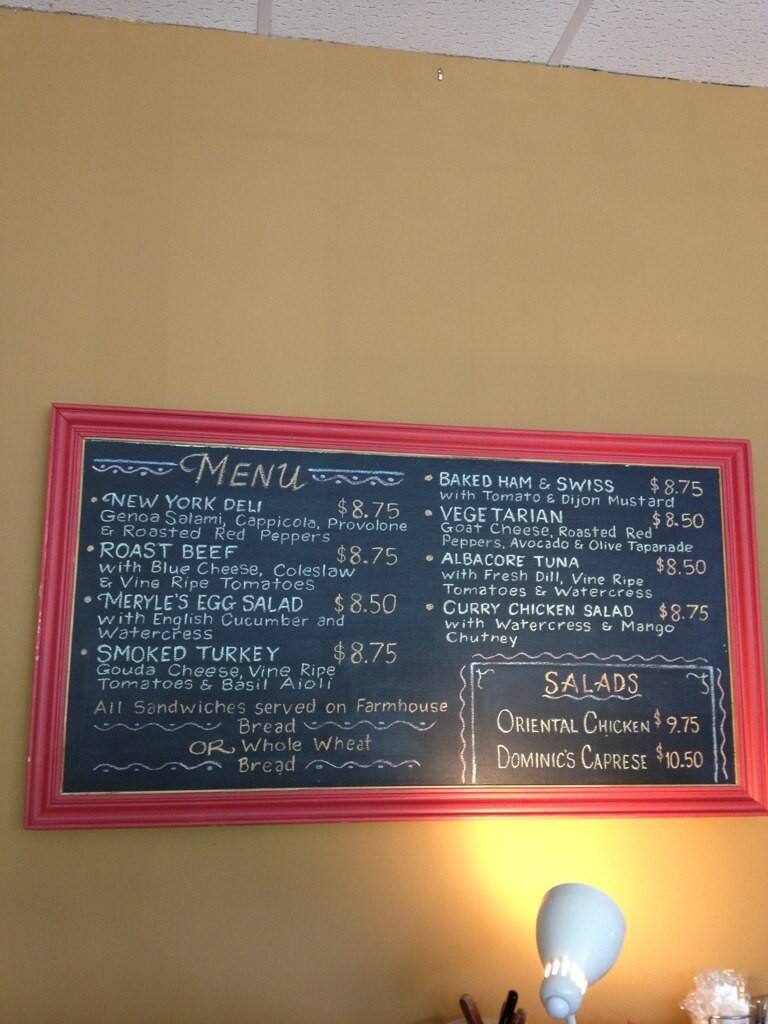 MENU
• NEW YORK DELI $8.75
Genoa Salami, Cappicola, Provolone
& Roasted Red Peppers
• ROAST BEEF $8.75
with Blue Cheese, Coleslaw
& Vine Ripe Tomatoes
• MERYLE'S EGG SALAD $8.50
with English Cucumber and
Watercress
• SMOKED TURKEY $8.75
Gouda Cheese, Vine Ripe
Tomatoes & Basil Aioli
All Sandwiches served on Farmhouse
Bread
OR Whole Wheat
Bread
• BAKED HAM & SWISS $8.75
with Tomato & Dijon Mustard
• VEGETARIAN $8.50
Goat Cheese, Roasted Red
Peppers, Avocado & Olive Tapanade
• ALBACORE TUNA $8.50
with Fresh Dill, Vine Ripe
Tomatoes & Watercress
• CURRY CHICKEN SALAD $8.75
with Watercress & Mango
Chutney
SALADS
ORIENTAL CHICKEN $9.75
DOMINIC'S CAPRESE $10.50